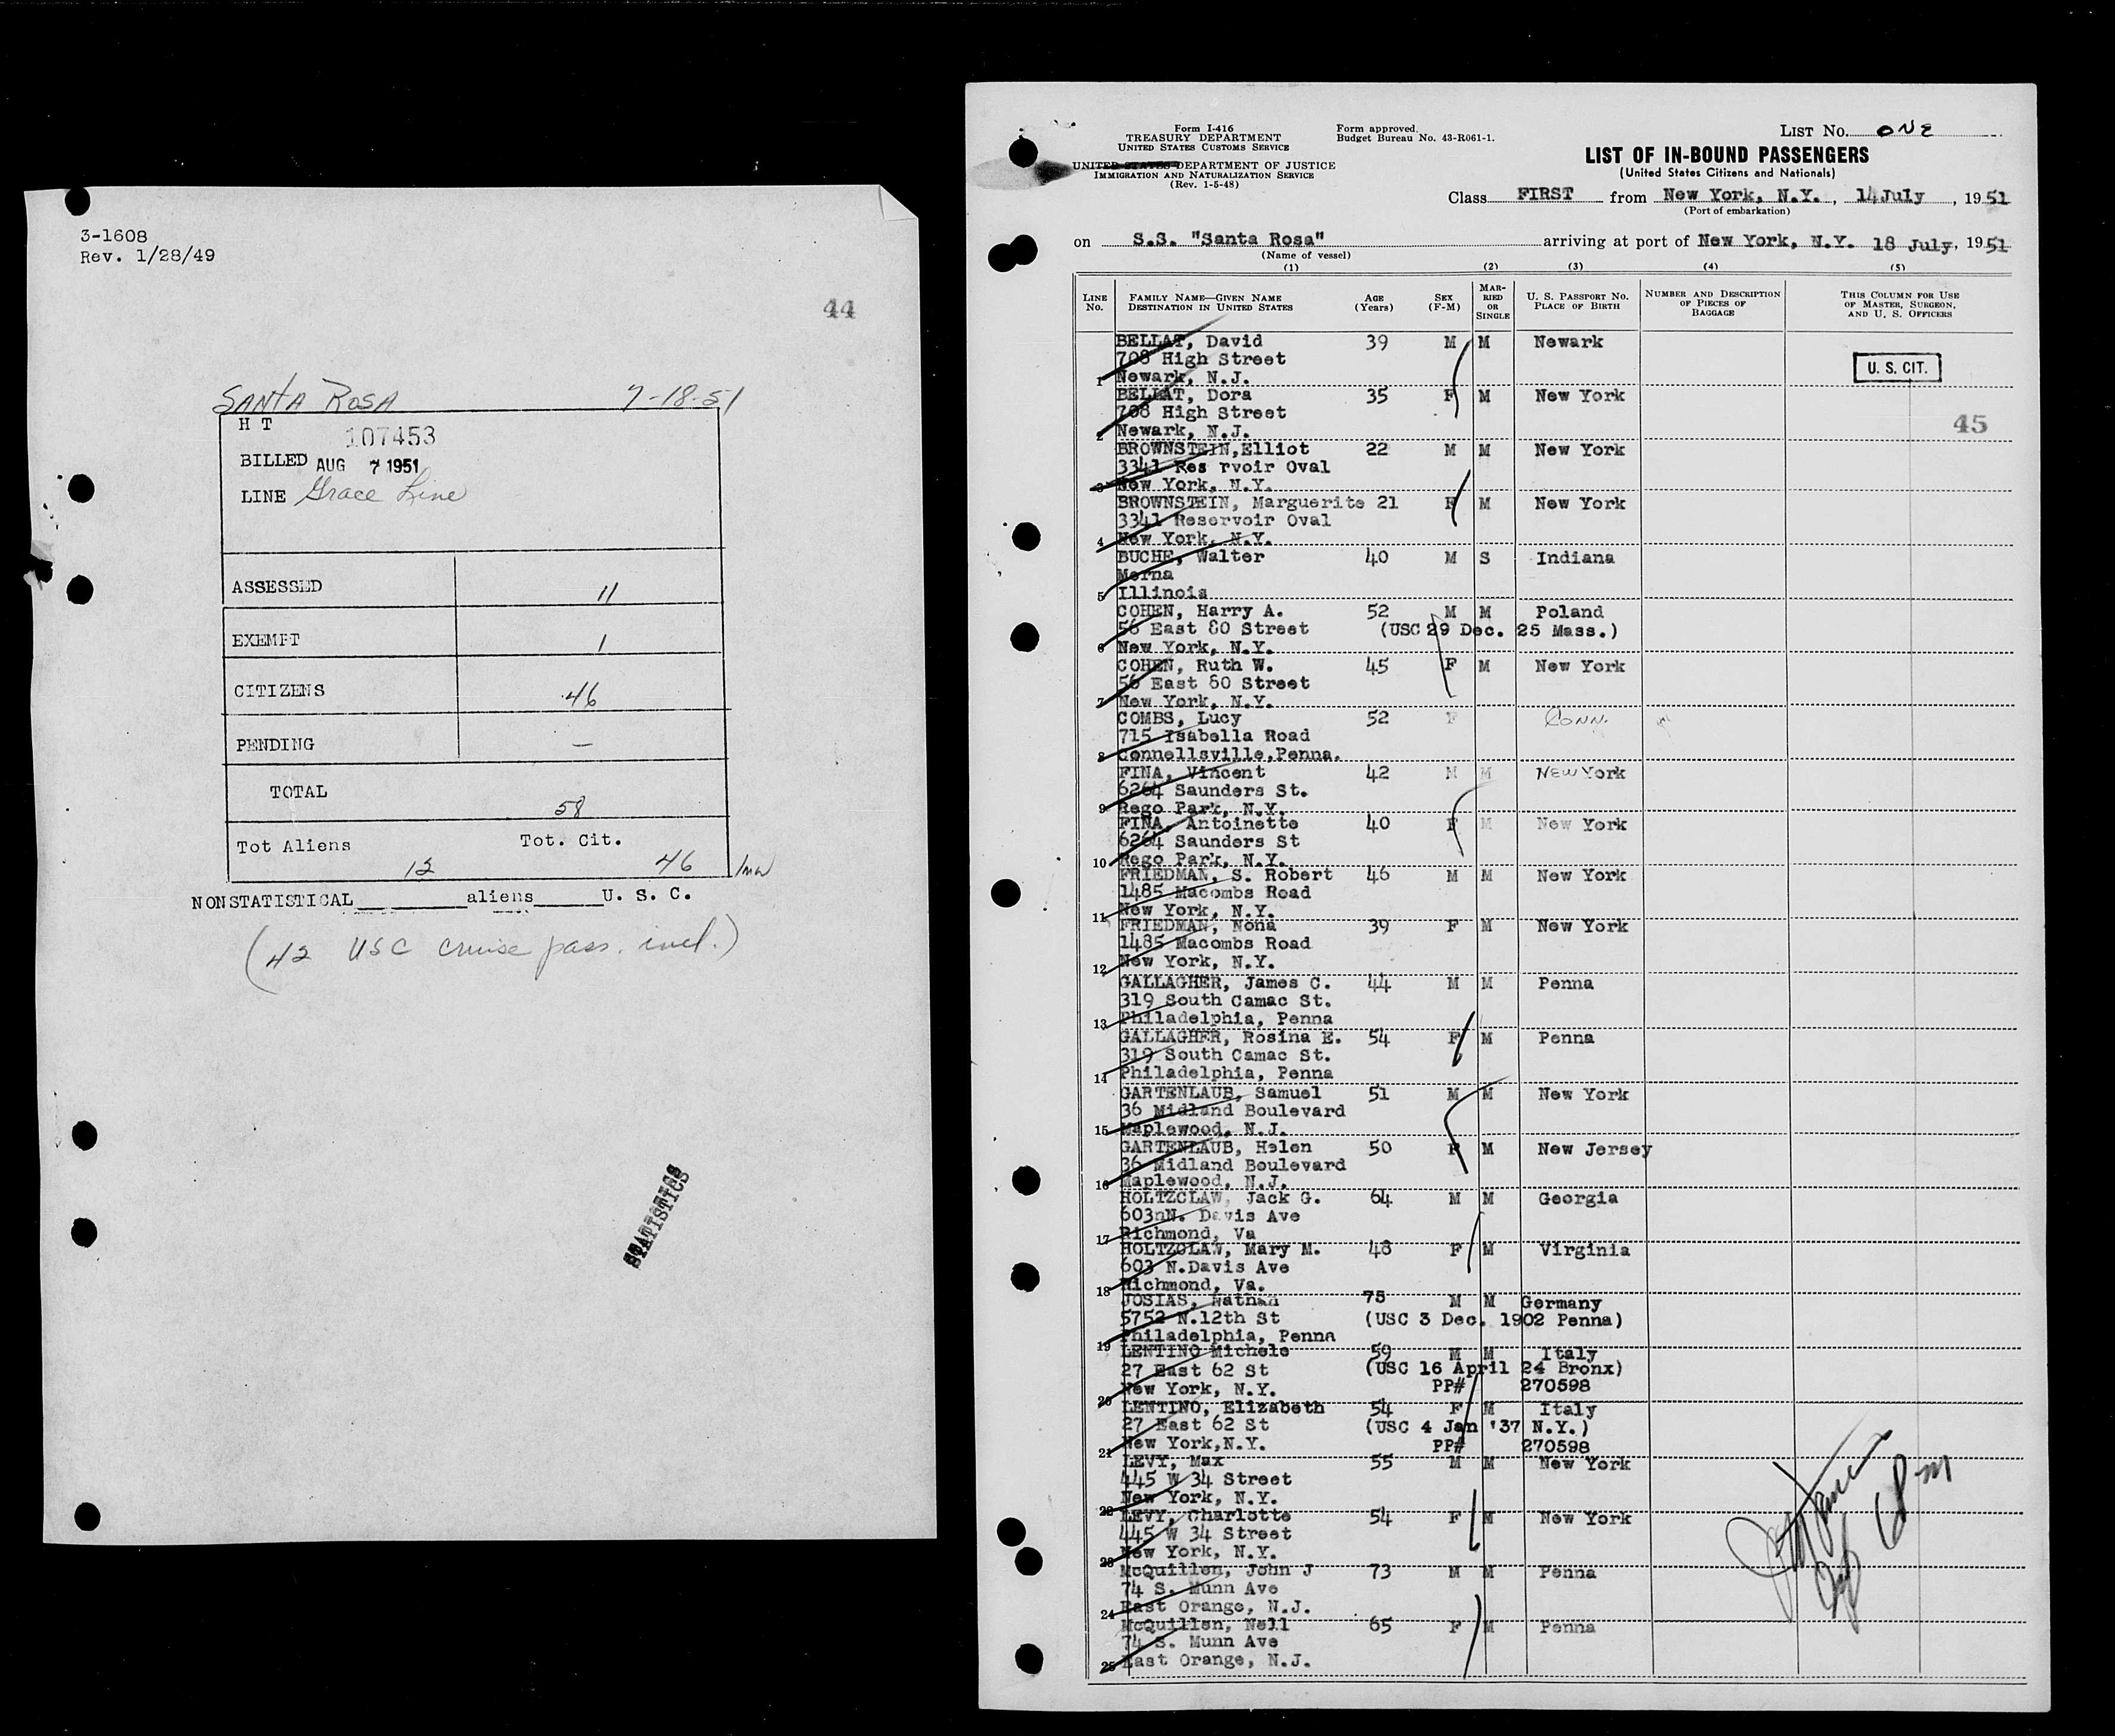 3-1608
Rev. 1/28/49
44
SANTA ROSA 7-18-51
H T
107453
BILLED AUG 7 1951
LINE Grace Line
ASSESSED 11
EXEMPT 1
CITIZENS 46
PENDING —
TOTAL 58
Tot Aliens Tot. Cit.
12 46 /mw
NONSTATISTICAL ________ aliens _____ U. S. C.
(42 USC cruise pass. incl.)
STATISTICS
Form I-416
TREASURY DEPARTMENT
UNITED STATES CUSTOMS SERVICE
UNITED STATES DEPARTMENT OF JUSTICE
IMMIGRATION AND NATURALIZATION SERVICE
(Rev. 1-5-48)
Form approved.
Budget Bureau No. 43-R061-1.
LIST No. ONE
LIST OF IN-BOUND PASSENGERS
(United States Citizens and Nationals)
Class FIRST from New York, N.Y., 14 July, 1951
(Port of embarkation)
on S.S. "Santa Rosa" arriving at port of New York, N.Y. 18 July, 1951
(Name of vessel)
(1) (2) (3) (4) (5)
LINE No. FAMILY NAME—GIVEN NAME DESTINATION IN UNITED STATES AGE (Years) SEX (F-M) MARRIED OR SINGLE U. S. PASSPORT NO. PLACE OF BIRTH NUMBER AND DESCRIPTION OF PIECES OF BAGGAGE THIS COLUMN FOR USE OF MASTER, SURGEON, AND U. S. OFFICERS
BELLAT, David 39 M M Newark
708 High Street
U. S. CIT.
1 Newark, N.J.
BELLAT, Dora 35 F M New York
708 High Street
45
2 Newark, N.J.
BROWNSTEIN,Elliot 22 M M New York
3341 Res rvoir Oval
3 New York, N.Y.
BROWNSTEIN, Marguerite 21 F M New York
3341 Reservoir Oval
4 New York, N.Y.
BUCHE, Walter 40 M S Indiana
Merna
5 Illinois
COHEN, Harry A. 52 M M Poland
56 East 80 Street (USC 29 Dec. 25 Mass.)
6 New York, N.Y.
COHEN, Ruth W. 45 F M New York
56 East 80 Street
7 New York, N.Y.
COMBS, Lucy 52 F CONN.
715 Isabella Road
8 Connellsville,Penna.
FINA, Vincent 42 M M NEW York
6264 Saunders St.
9 Rego Park, N.Y.
FINA, Antoinette 40 F M New York
6264 Saunders St
10 Rego Park, N.Y.
FRIEDMAN, S. Robert 46 M M New York
1485 Macombs Road
11 New York, N.Y.
FRIEDMAN, Nona 39 F M New York
1485 Macombs Road
12 New York, N.Y.
GALLAGHER, James C. 44 M M Penna
319 South Camac St.
13 Philadelphia, Penna
GALLAGHER, Rosina E. 54 F M Penna
319 South Camac St.
14 Philadelphia, Penna
GARTENLAUB, Samuel 51 M M New York
36 Midland Boulevard
15 Maplewood, N.J.
GARTENLAUB, Helen 50 F M New Jersey
36 Midland Boulevard
16 Maplewood, N.J.
HOLTZCLAW, Jack G. 64 M M Georgia
603nN. Davis Ave
17 Richmond, Va
HOLTZCLAW, Mary M. 48 F M Virginia
603 N.Davis Ave
18 Richmond, Va.
JOSIAS, Nathan 75 M M Germany
5752 N.12th St (USC 3 Dec. 1902 Penna)
19 Philadelphia, Penna
LENTINO Michele 59 M M Italy
27 East 62 St (USC 16 April 24 Bronx)
20 New York, N.Y. PP# 270598
LENTINO, Elizabeth 54 F M Italy
27 East 62 St (USC 4 Jan '37 N.Y.)
21 New York,N.Y. PP# 270598
LEVY, Max 55 M M New York
445 W 34 Street
22 New York, N.Y.
LEVY, Charlotte 54 F M New York
445 W 34 Street
23 New York, N.Y.
McQuillen, John J 73 M M Penna
74 S. Munn Ave
24 East Orange, N.J.
McQuillen, Nell 65 F M Penna
74 S. Munn Ave
25 East Orange, N.J.